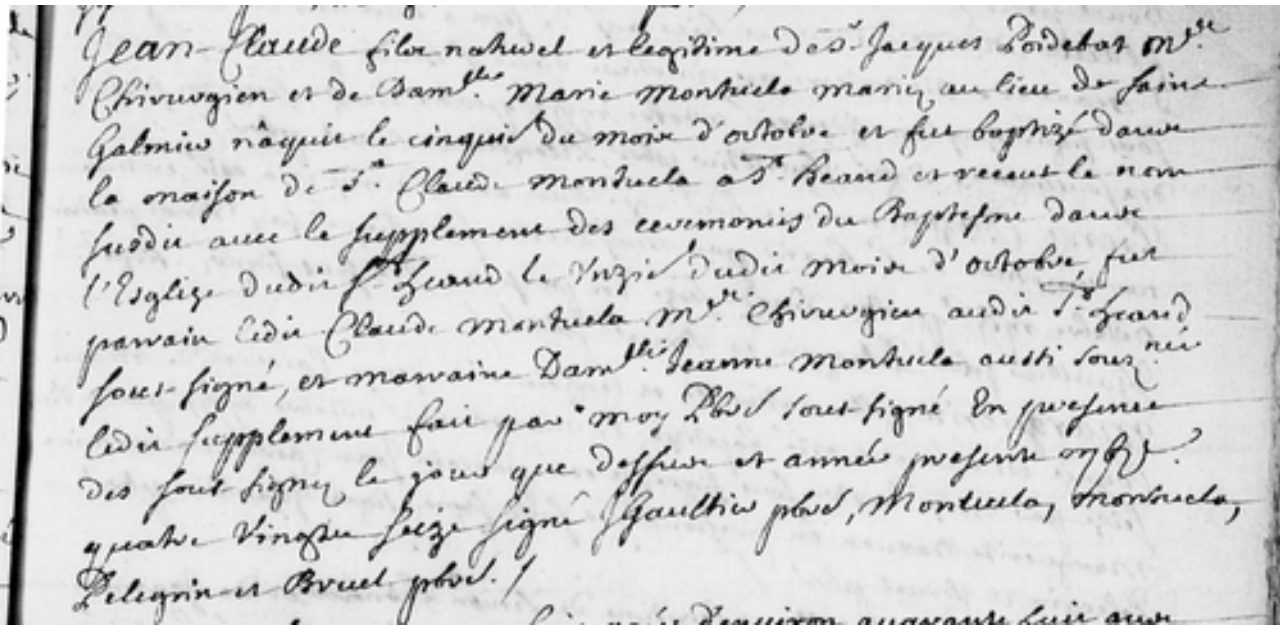 Jean-Claude filz naturel et legitime de Sr. Jacques Poidebat mtre
Chirurgien et de Damlle. Marie Montuela mariez au lieu de saint
Galmier nâquit le cinquie du mois d'octobre et fut baptizé dans
la maison de Sr. Claude Montuela a St. heand et receut le nom
susdit avec le supplement des ceremonies du Baptesme dans
l'Esglize dudit St heand le unzie dudit mois d'octobre, fut
parrain ledit Claude Montuela Mtre. Chirurgien audit St heand
sous-signé, et marraine Damlle. Jeanne Montuela aussi sousnée
ledit supplement fait par moy Pbre sous-signé En presence
des sous-signez le jour que dessus et année presente
quatre vingts seize signé Gaultier pbre, Montuela, Montuela,
Pelegrin et Bruel pbre. /
d'environ quarante huit ans